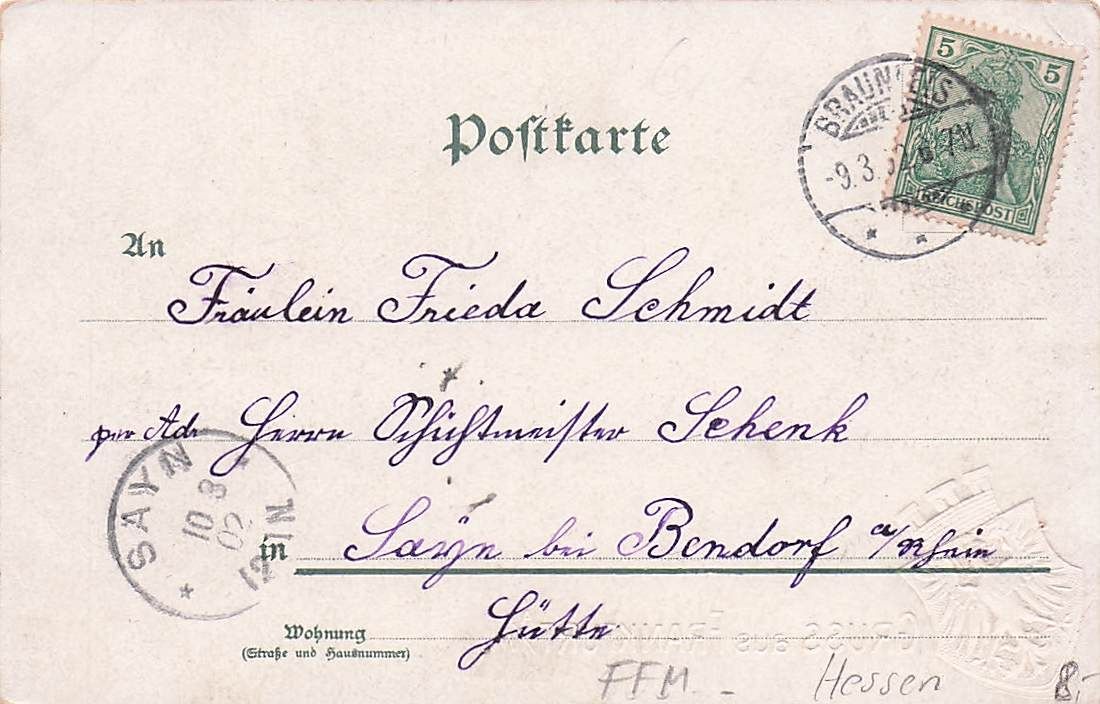 Postkarte
5 5
REICHSPOST
BRAUNFELS
-9.3. 6-7N
An
Fräulein Frieda Schmidt
per Adr Herrn Schichtmeister Schenk
SAYN
10 3
02
12-1N
in Sayn bei Bendorf a/Rhein
Hütte
Wohnung
(Straße und Hausnummer)
GRUSS aus FRANKFURT
FFM Hessen 8,-